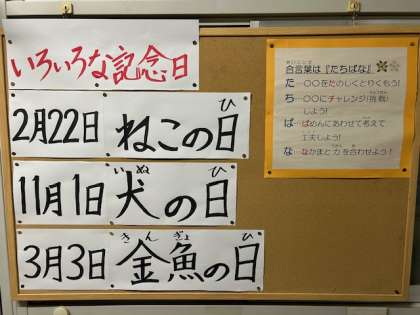 いろいろな記念日
2月22日 ねこの日
11月1日 犬の日
3月3日 金魚の日
合言葉は『たちばな』
た…〇〇をたのしくとりくもう!
ち…〇〇にチャレンジ(挑戦)
しよう!
ば…ばめんにあわせて考えて
工夫しよう!
な…なかまと力を合わせよう!